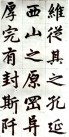 維從其之孔延
西山之原罔异
厚完有封斯阡